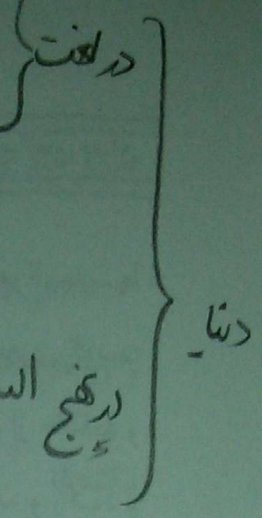 در لغت
دنیا
در نهج